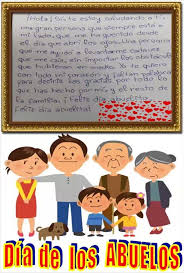 ¡Hola! Si, te estoy saludando a ti
una gran persona que siempre está a
mi lado, que me ha querido desde
el día que abrí los ojos. Una persona
que me ayudó a levantarme cada vez
que me caía, sin importar los obstáculos
que hubieran en medio. Yo te quiero
con todo mi corazón y faltan palabras
para decirte las gracias por todo lo
que has hecho por mí y el resto de
la familia. ¡Feliz día abuelita!
Feliz día abuelita!
Día de los ABUELOS